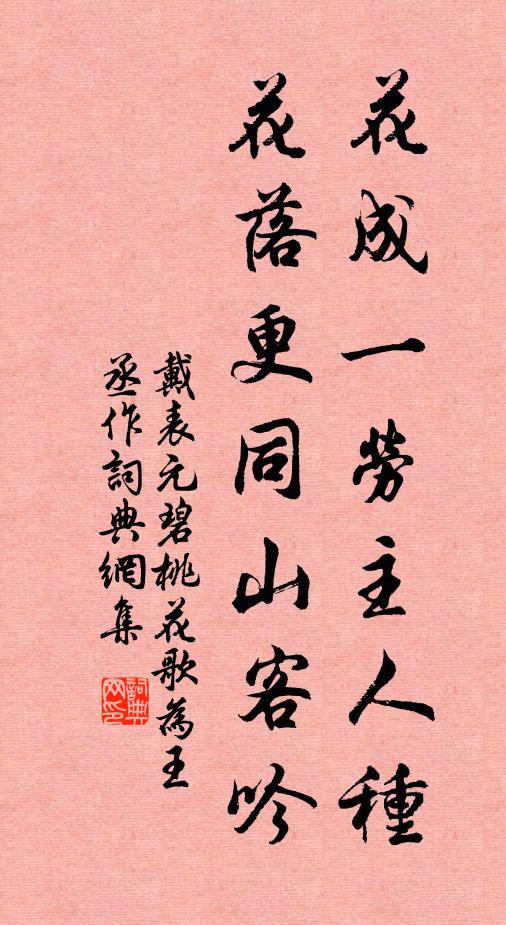 花成一勞主人種
花落更同山客吟
戴表元碧桃花歌為王
丞作詞典網集
詞典网印